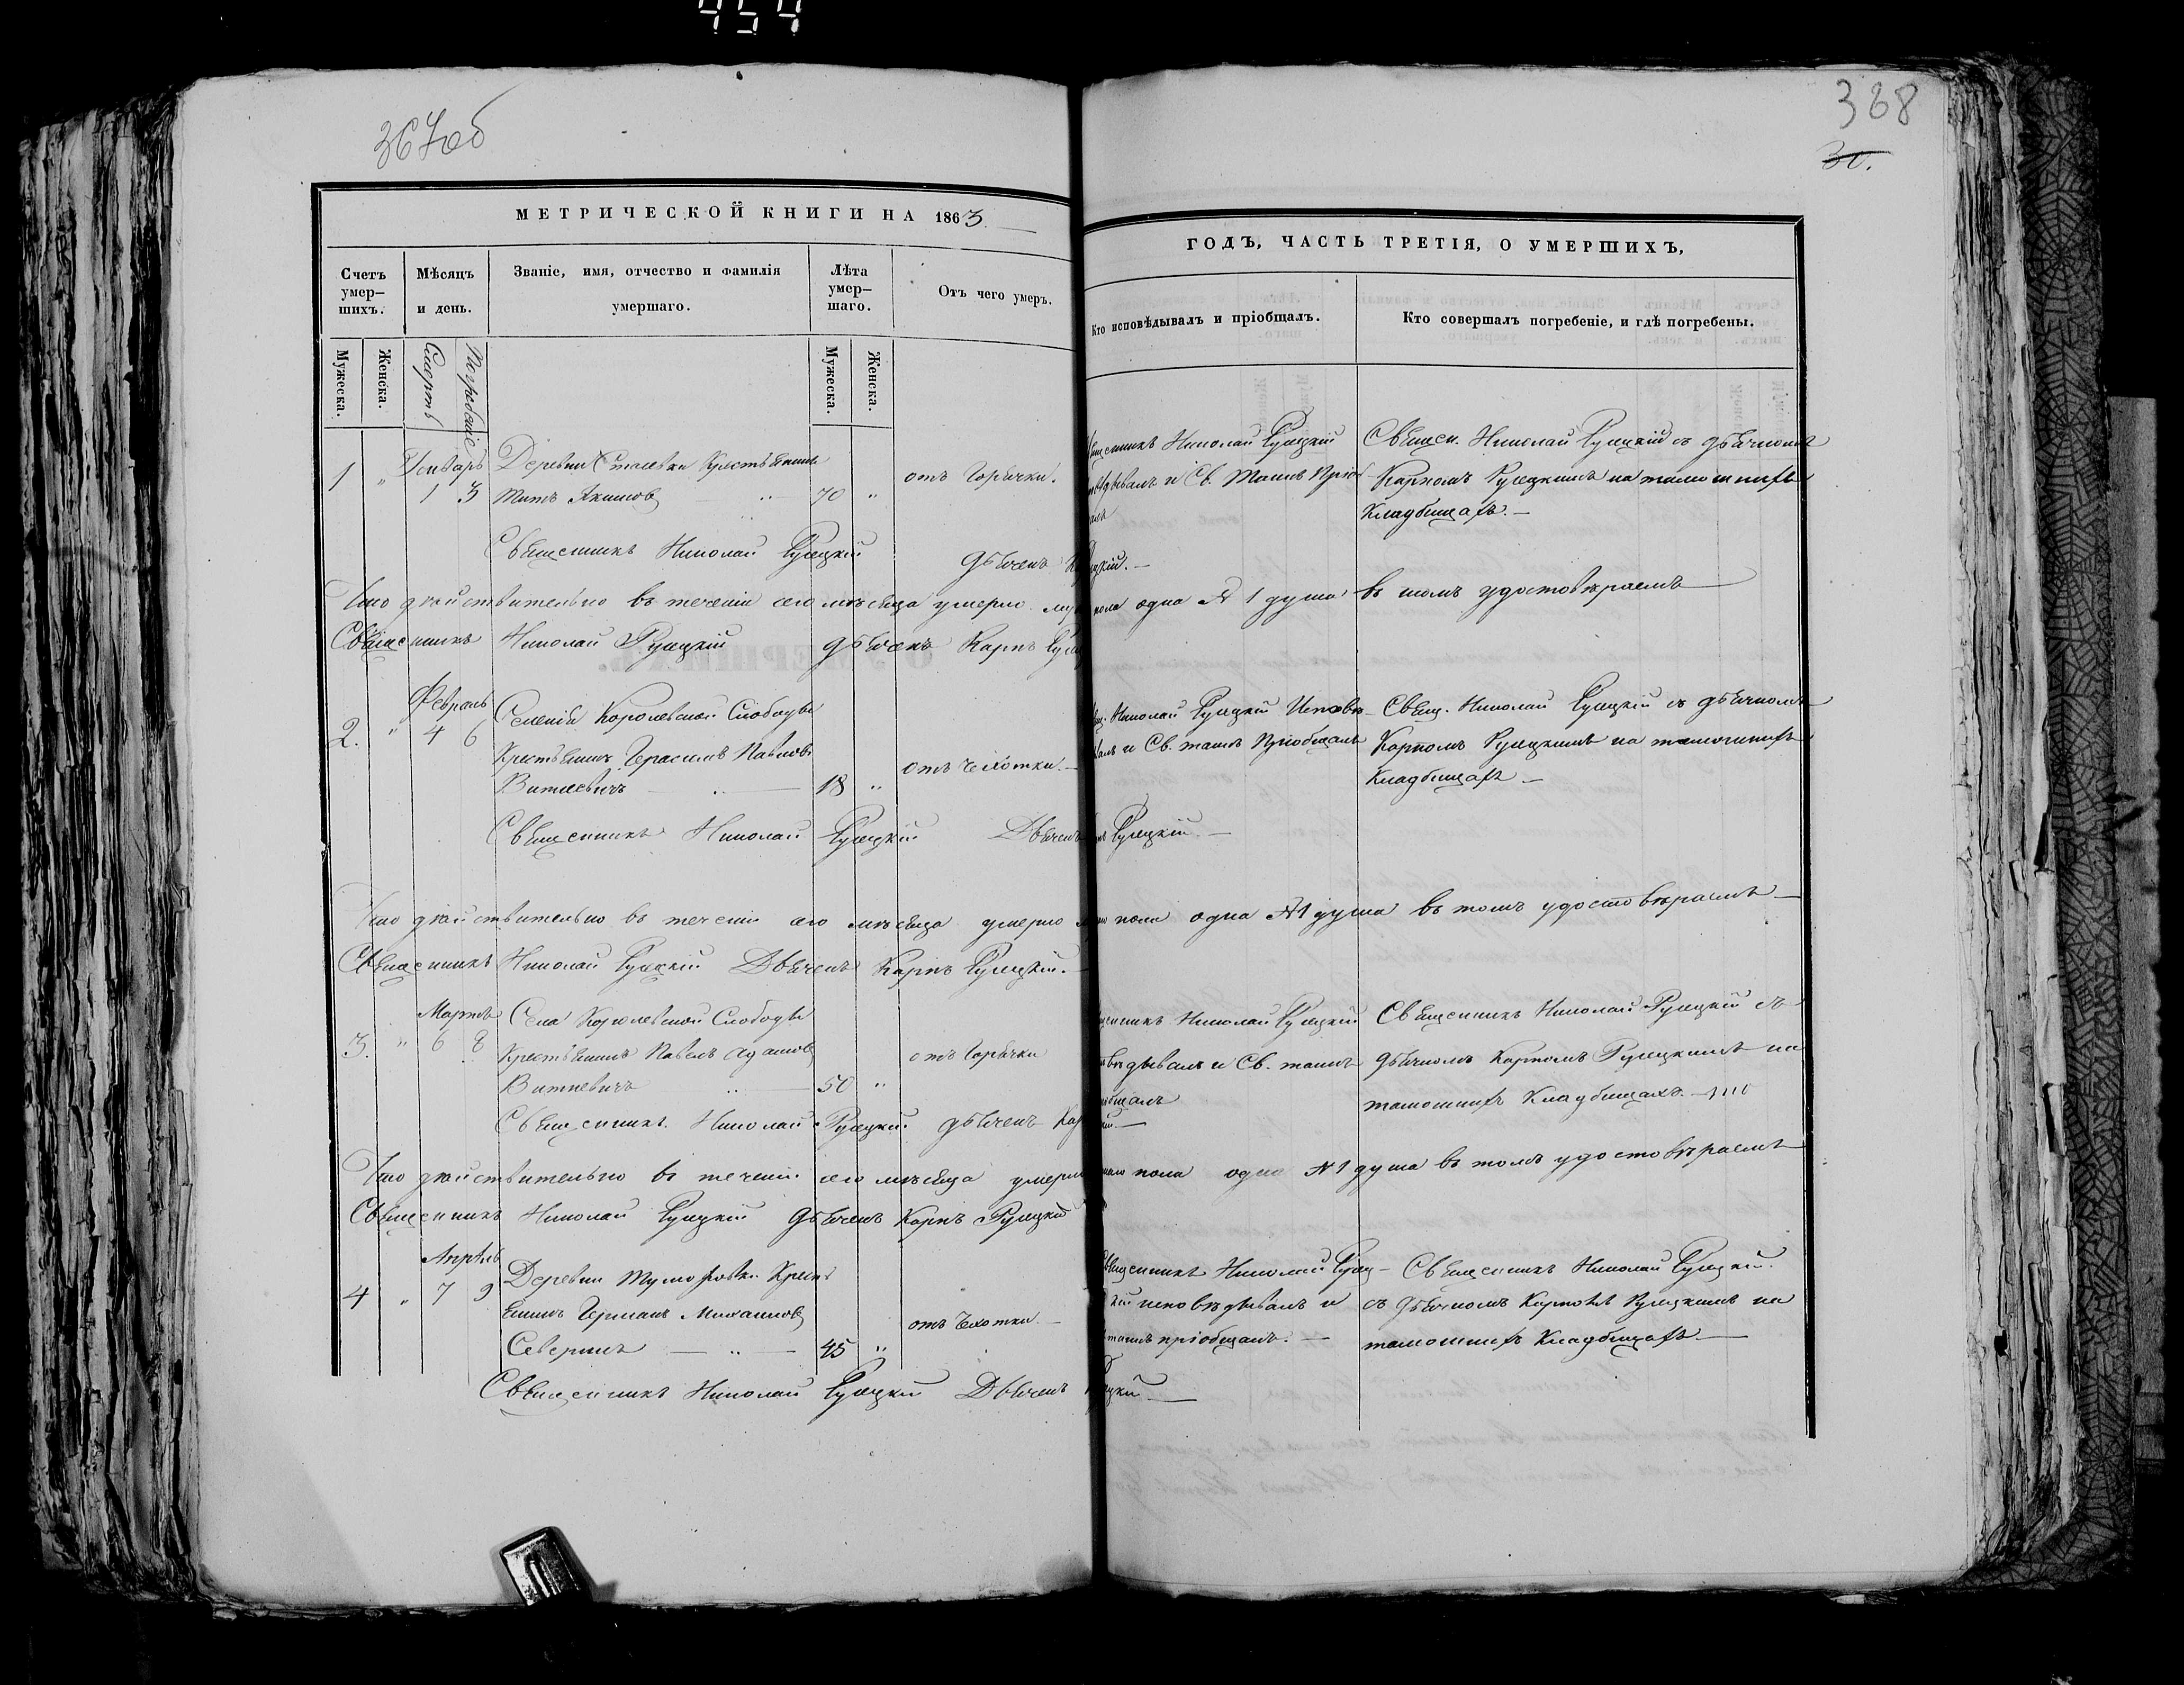 454
367 об
368
30.
МЕТРИЧЕСКОЙ КНИГИ НА 1863
ГОДЪ, ЧАСТЬ ТРЕТІЯ, О УМЕРШИХЪ,
Счетъ умер-
шихъ.
Мѣсяцъ
и день.
Званіе, имя, отчество и фамилія
умершаго.
Лѣта
умер-
шаго.
Отъ чего умеръ.
Кто исповѣдывалъ и пріобщалъ.
Кто совершалъ погребеніе, и гдѣ погребены.
Мужеска.
Женска.
Смерть
Погребеніе
Мужеска.
Женска.
Январь
1 " 1 3
Деревни Крестьянинъ
Титъ Акимовъ 70 "
отъ Горячки.
Николай Руцкій
и Св. Таинъ
Священ. Николай Руцкій съ дьячкомъ
Карпомъ Руцкимъ на тамошнихъ
Кладбищахъ.
Священникъ Николай Руцкій Дьячекъ
Что дѣйствительно въ теченіи сего мѣсяца умерло пола одна № 1 душа въ томъ удостовѣряемъ
Священникъ Николай Руцкій Дьячекъ Карпъ
Февраль
2. " 4 6
Селенія Королевской Слободы
Крестьянинъ Герасимъ Павловъ
Виткевичъ 18 "
отъ Чехотки.
Николай Руцкій Исповѣ-
и Св. таинъ Пріобщалъ
Свящ. Николай Руцкій съ дьячкомъ
Карпомъ Руцкимъ на тамошнихъ
Кладбищахъ
Священникъ Николай Руцкій Дьячекъ Руцкій.
Что дѣйствительно въ теченіи сего мѣсяца умерло пола одна № 1 душа въ томъ удостовѣряемъ
Священникъ Николай Руцкій Дьячекъ Карпъ Руцкій.
Мартъ
3. " 6 8
Села Королевской Слободы
Крестьянинъ Павелъ Адамовъ
Виткевичъ 50 "
отъ Горячки
Николай Руцкій
и Св. таинъ
Священникъ Николай Руцкій съ
дьячкомъ Карпомъ Руцкимъ на
тамошнихъ Кладбищахъ.
Священникъ Николай Руцкій. Дьячекъ
Что дѣйствительно въ теченіи сего мѣсяца пола одна № 1 душа въ томъ удостовѣряемъ
Священникъ Николай Руцкій Дьячекъ Карпъ Руцкій
Апрѣль
4 " 7 9
Деревни Крестъ
янинъ Германъ Михаиловъ
Северинъ 45 "
отъ Чехотки.
Священникъ Николай Руц-
кій исповѣдывалъ и
таинъ пріобщалъ.
Священникъ Николай Руцкій.
съ дьячкомъ Карпомъ Руцкимъ на
тамошнихъ Кладбищахъ
Священникъ Николай Руцкій Дьячекъ